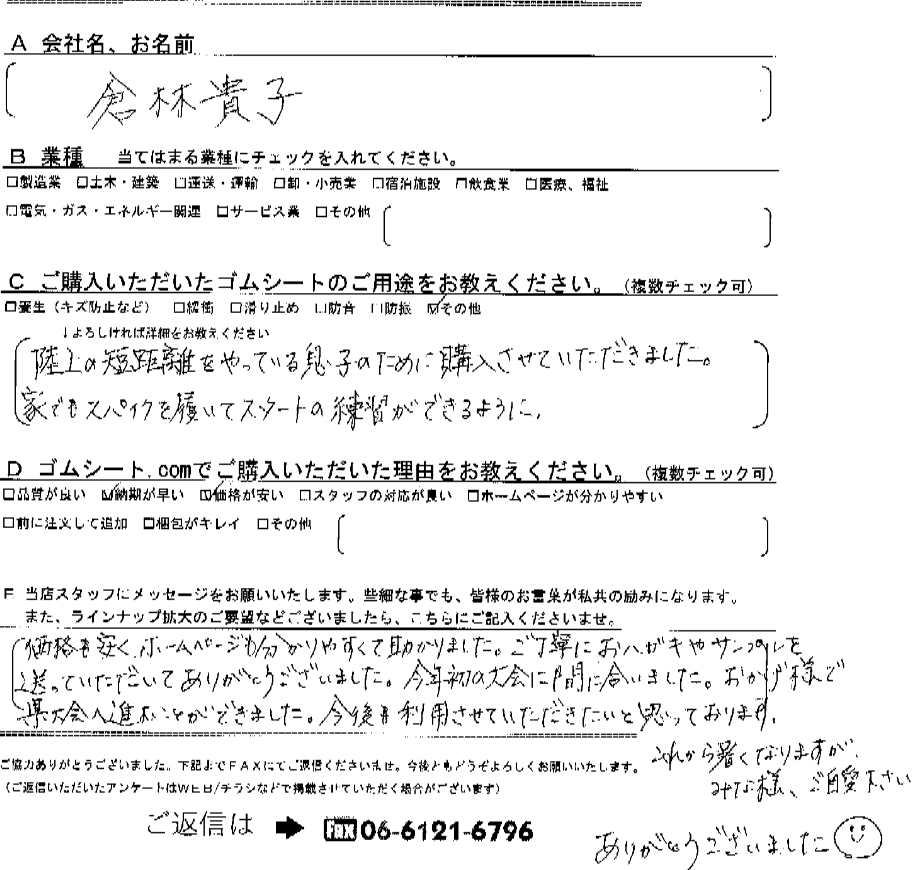 A 会社名、お名前
倉林貴子
B 業種 当てはまる業種にチェックを入れてください。
□製造業 □土木・建築 □運送・運輸 □卸・小売業 □宿泊施設 □飲食業 □医療、福祉
□電気・ガス・エネルギー関連 □サービス業 □その他
C ご購入いただいたゴムシートのご用途をお教えください。(複数チェック可)
□養生(キズ防止など) □緩衝 □滑り止め □防音 □防振 ☑その他
↓よろしければ詳細をお教えください
陸上の短距離をやっている息子のために購入させていただきました。
家でもスパイクを履いてスタートの練習ができるように。
D ゴムシート.comでご購入いただいた理由をお教えください。(複数チェック可)
□品質が良い ☑納期が早い ☑価格が安い □スタッフの対応が良い □ホームページが分かりやすい
□前に注文して追加 □梱包がキレイ □その他
E 当店スタッフにメッセージをお願いいたします。些細な事でも、皆様のお言葉が私共の励みになります。
また、ラインナップ拡大のご要望などございましたら、こちらにご記入くださいませ。
価格も安く、ホームページも分かりやすくて助かりました。ご丁寧におハガキやサンプルを
送っていただいてありがとうございました。今年初の大会に間に合いました。おかげ様で
県大会へ進むことができました。今後も利用させていただきたいと思っております。
これから暑くなりますが、
みな様、ご自愛下さい
ご協力ありがとうございました。下記までFAXにてご返信くださいませ。今後ともどうぞよろしくお願いいたします。
(ご返信いただいたアンケートはWEB/チラシなどで掲載させていただく場合がございます)
ご返信は ➡ FAX 06-6121-6796
ありがとうございました